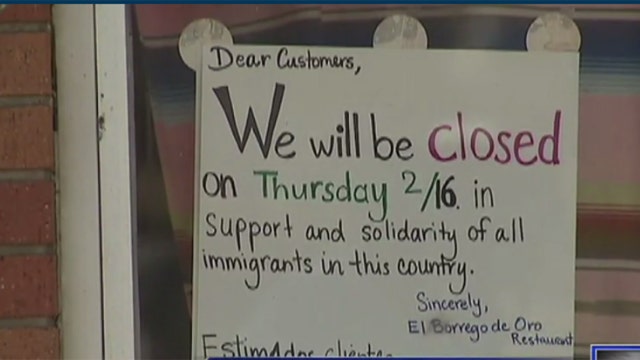 Dear Customers,
We will be closed
on Thursday 2/16. in
support and solidarity of all
immigrants in this country.
Sincerely,
El Borrego de Oro
Restaurant
Estimados clientes